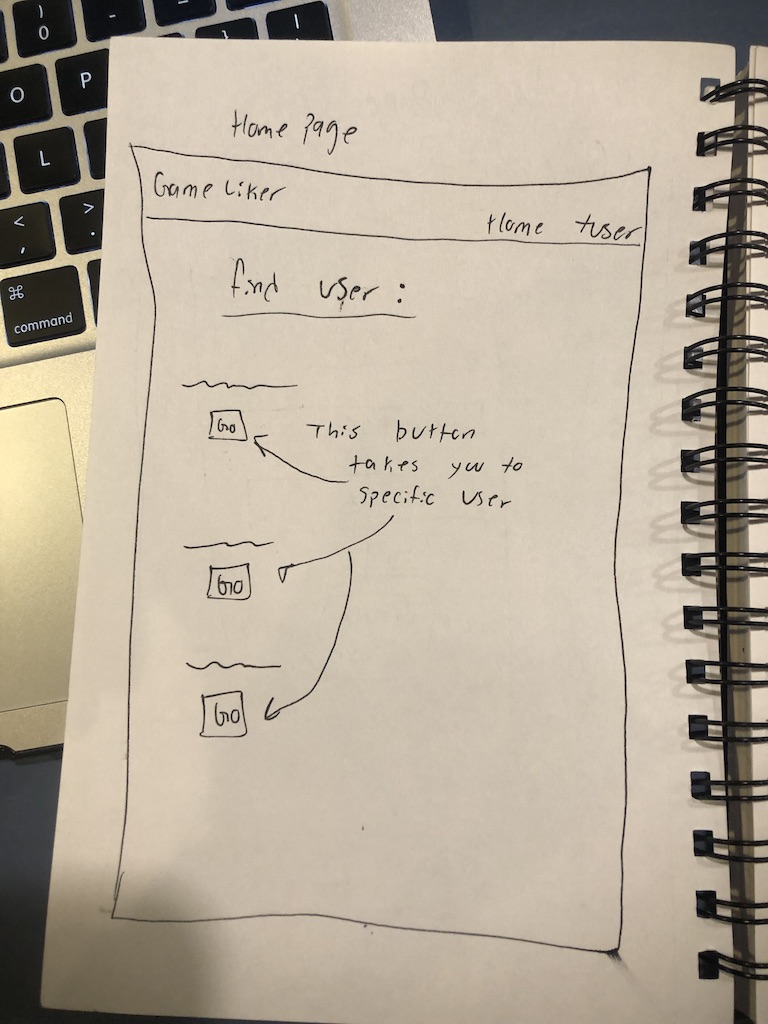 )
0
O
P
L
<
,
>
.
⌘
command
Home Page
Game Liker
Home +user
find user :
Go
This button
takes you to
specific user
Go
Go